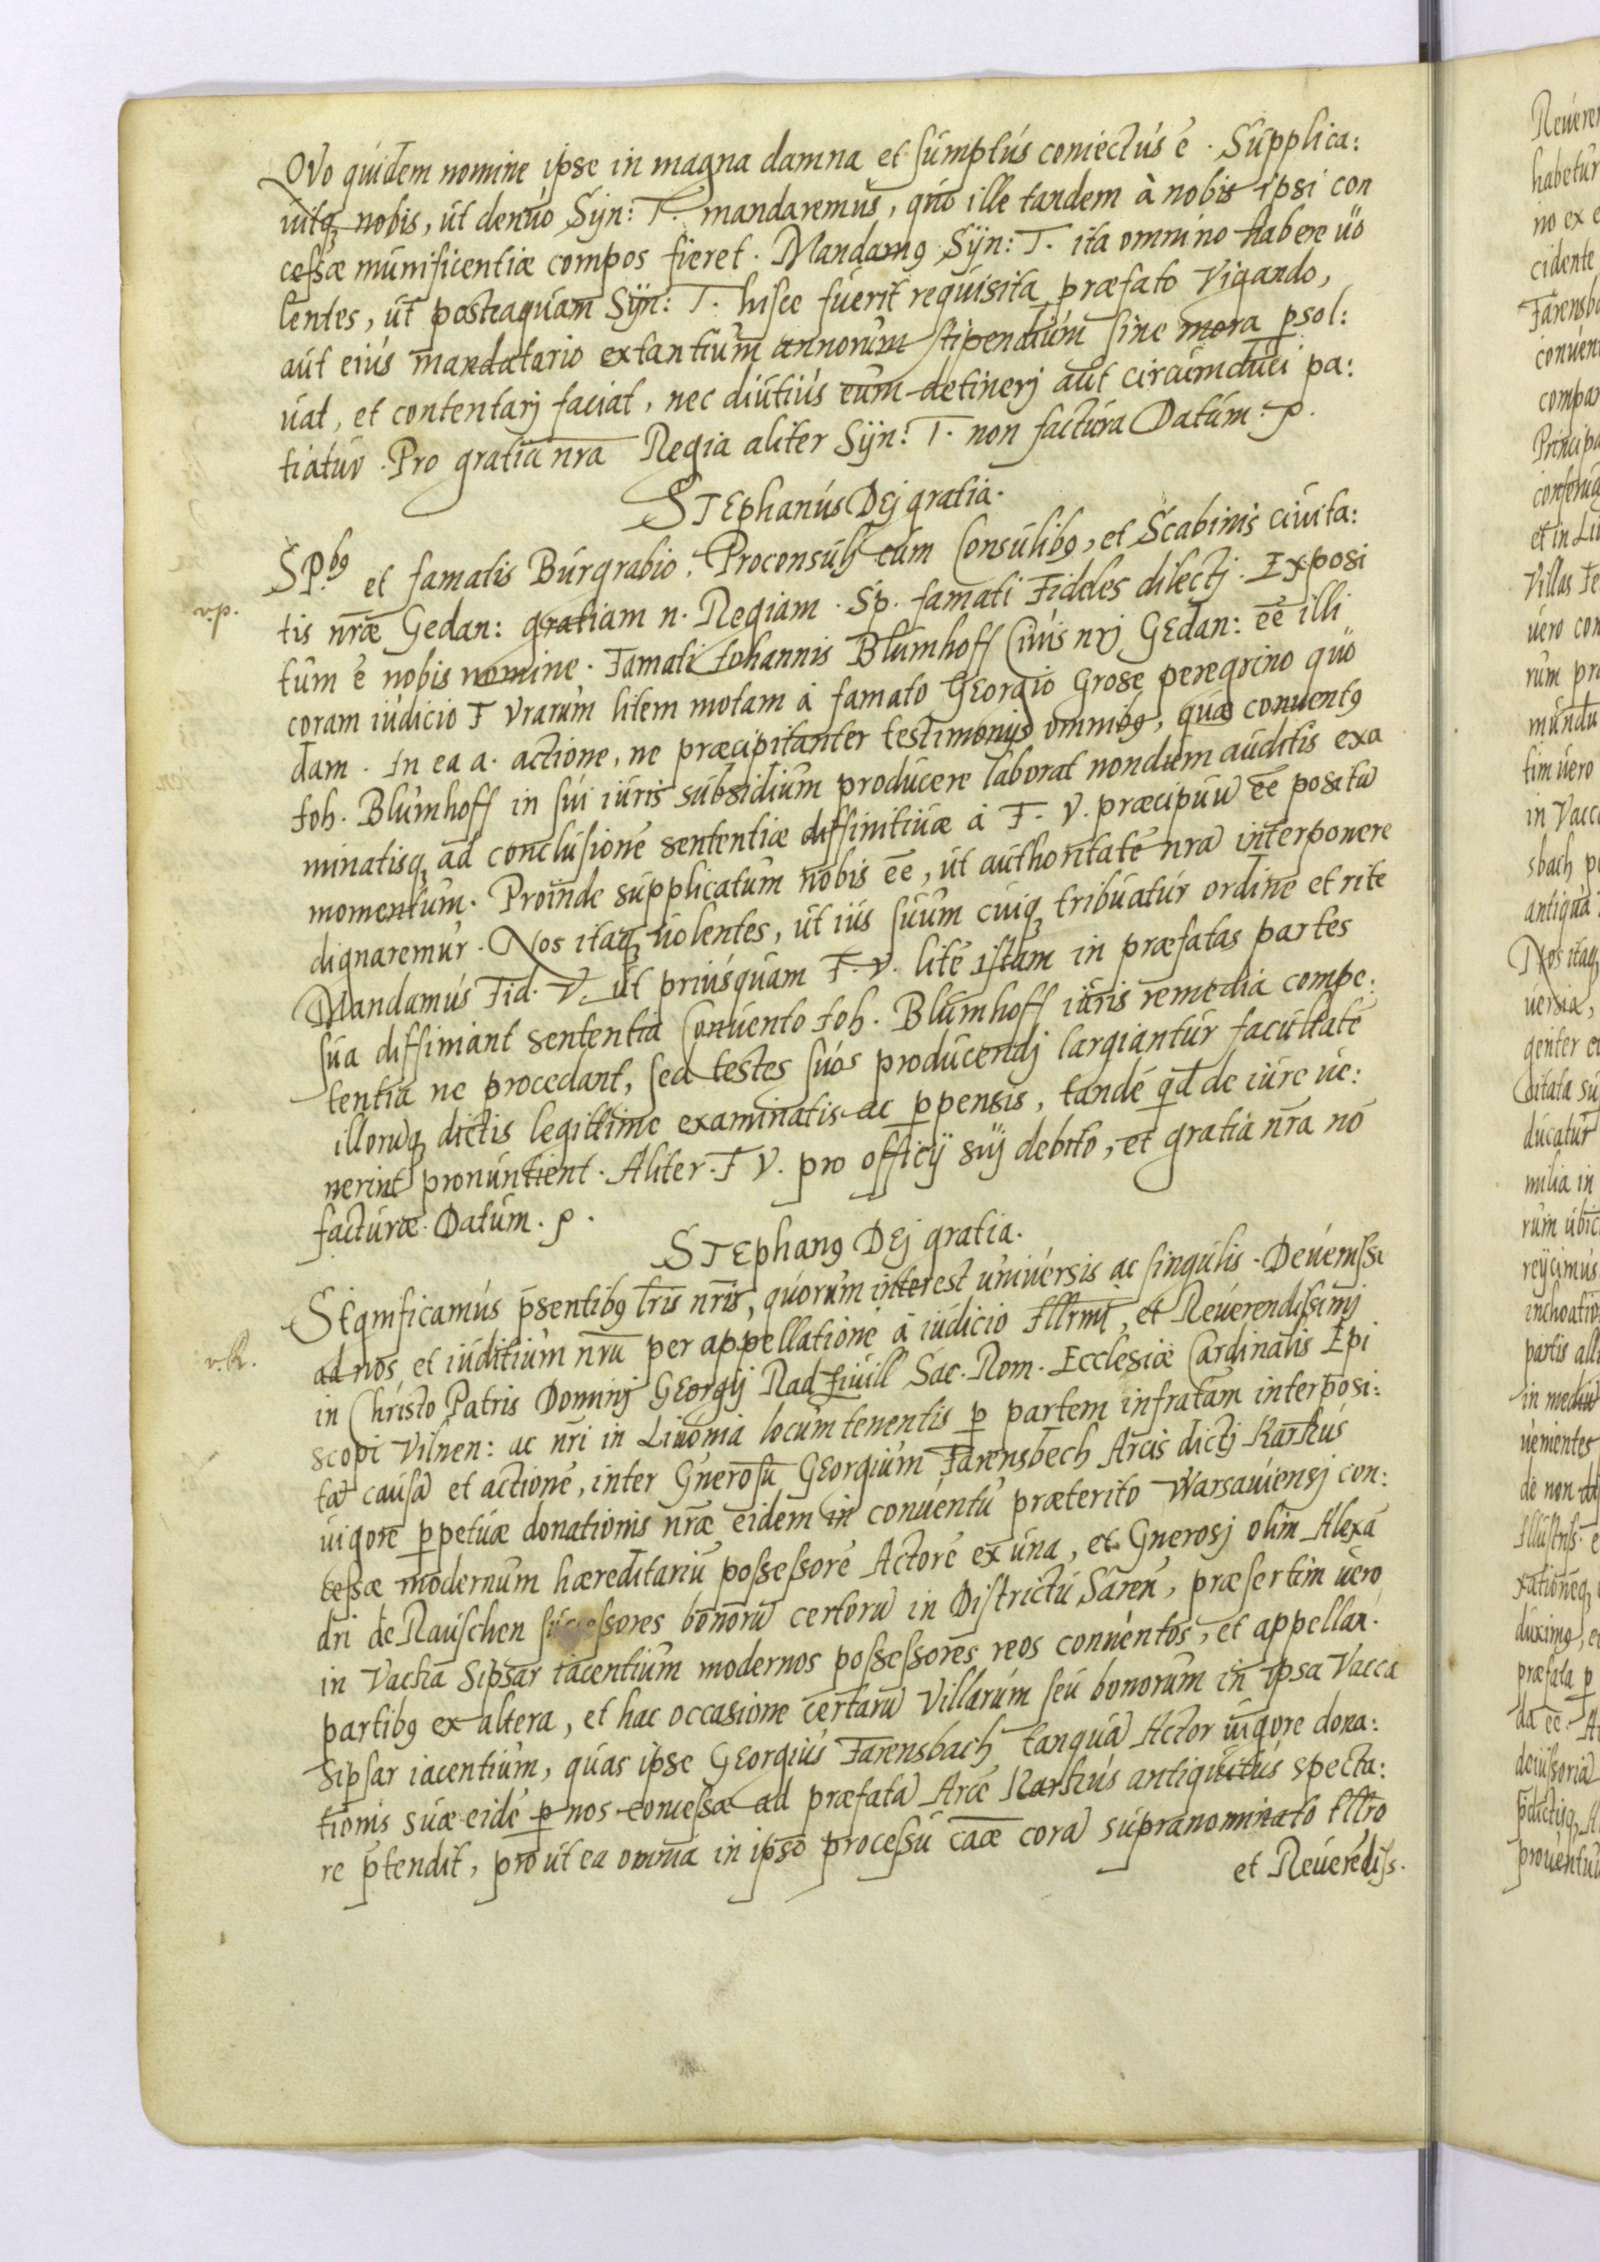 QVo quidem nomine ipse in magna damna et sumptus coniectus ē. Supplica:
uitq3 nobis, ut denuo Syn: T. mandaremus, quo ille tandem à nobis ipsi con
cessæ munificentiæ compos fieret. Mandam9 Syn: T. ita omnino habere uo
lentes, ut posteaquam Syn: T. hisce fuerit requisita præfato Vigando,
aut eius mandatario extantium annorum stipendium sine mora p̱sol:
uat, et contentarj faciat, nec diutius eum detinerj aut circumduci pa:
tiatur. Pro gratia nr̄a Regia aliter Syn: T. non factura Datum. p.
STEphanus DEj gratia.
SP.b9 et famatis Burgrabio, Proconsuli cum Consulib9, et Scabinis ciuita:
v.p.
tis nr̄æ Gedan: gratiam n. Regiam. Sp. famati Fideles dilectj. Exposi
tum ē nobis nomine. Famati Iohannis Blumhoff Ciuis nrj GEdan: ēē illi
coram iudicio F Vrarum litem motam à famato GEorgio Grose peregrino quo
dam. In ea a. actione, ne præcipitanter testimonijs omnib9, quæ conuent9
Ioh. Blumhoff in sui iuris subsidium producere laborat nondum auditis exa
minatisq3 ad conclusionē sententiæ diffinitiuæ à F. V. præcipuū ēē positū
momentum. Proinde supplicatum nobis ēē, ut authoritatē nrā interponere
dignaremur. Nos itaq3 uolentes, ut ius suum cuiq3 tribuatur ordine et rite
Mandamus Fid. V. ut priusquam F. V. litē istam in præfatas partes
sua diffiniant sententia Conuento Ioh. Blumhoff iuris remedia compe:
tentia ne procedant, sed testes suos producendj largiantur facultatē
illorūq3 dictis legittime examinatis ac p̱pensis, tandē qd de iure ue:
nerint pronuntient. Aliter. F V. pro officij suj debito, et gratia nr̄a nō
facturæ. Datum. p.
STEphan9 DEj gratia.
SIgnificamus p̄sentib9 lr̄is nr̄is, quorum interest uniuersis ac singulis. Deuenisse
ad nos et iuditium nr̄u per appellationē à iudicio Illrmi, et Reuerendissimj
v.R.
in Christo Patris Dominj GEorgij Radziuill Sac. Rom. Ecclesiæ Cardinalis Epi
scopi Vilnen: ac nr̄i in Liuonia locum tenentis p̱ partem infratam interposi:
tā causā et actionē, inter Gnerosū GEorgium Farensbech Arcis dictj Karkus
uigore p̱petuæ donationis nr̄æ eidem in conuentu præterito Warsauiensj con:
cessæ modernum hæreditariū possessorē Actorē ex una, et Gnerosj olim Alexā
dri de Rauschen successores bonorū certorū in Districtu Saren, præsertim uero
in Vacha Sipsar iacentium modernos possessores reos conuentos, et appellan.
partib9 ex altera, et hac occasione certarū Villarum seu bonorum in ipsa Vacca
Sipsar iacentium, quas ipse GEorgius Farensbach tanquā Actor uigore dona:
tionis suæ eidē p̱ nos concessæ ad præfatā Arcē Karkus antiquitus specta:
re p̄tendit, prout ea omnia in ipso processu cāæ corā supranominato Illro
et Reuerēdiss.